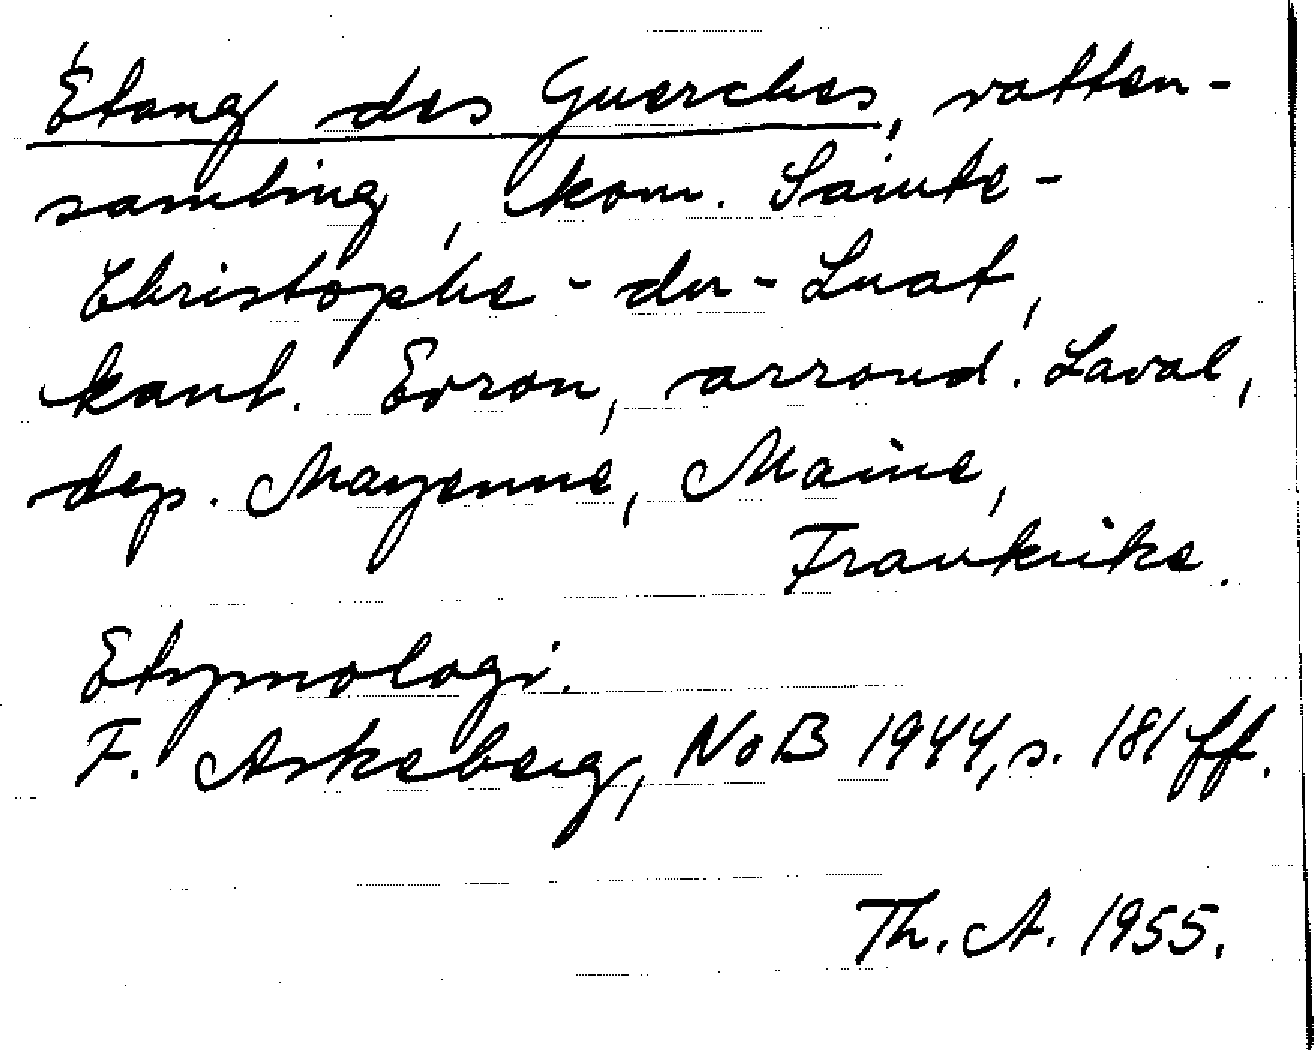 Étang des Guerches, vatten-
samling, kom. Sainte-
Christophe-du-Luat,
kant. Evron, arrond. Laval,
dep. Mayenne, Maine,
Frankrike.
Etymologi.
F. Askeberg, NoB 1944, s. 181 ff.
Th. A. 1955.